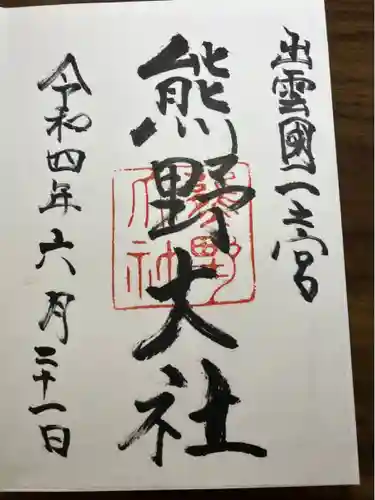 出雲國一之宮
熊野大社
令和四年六月二十一日
熊野大社